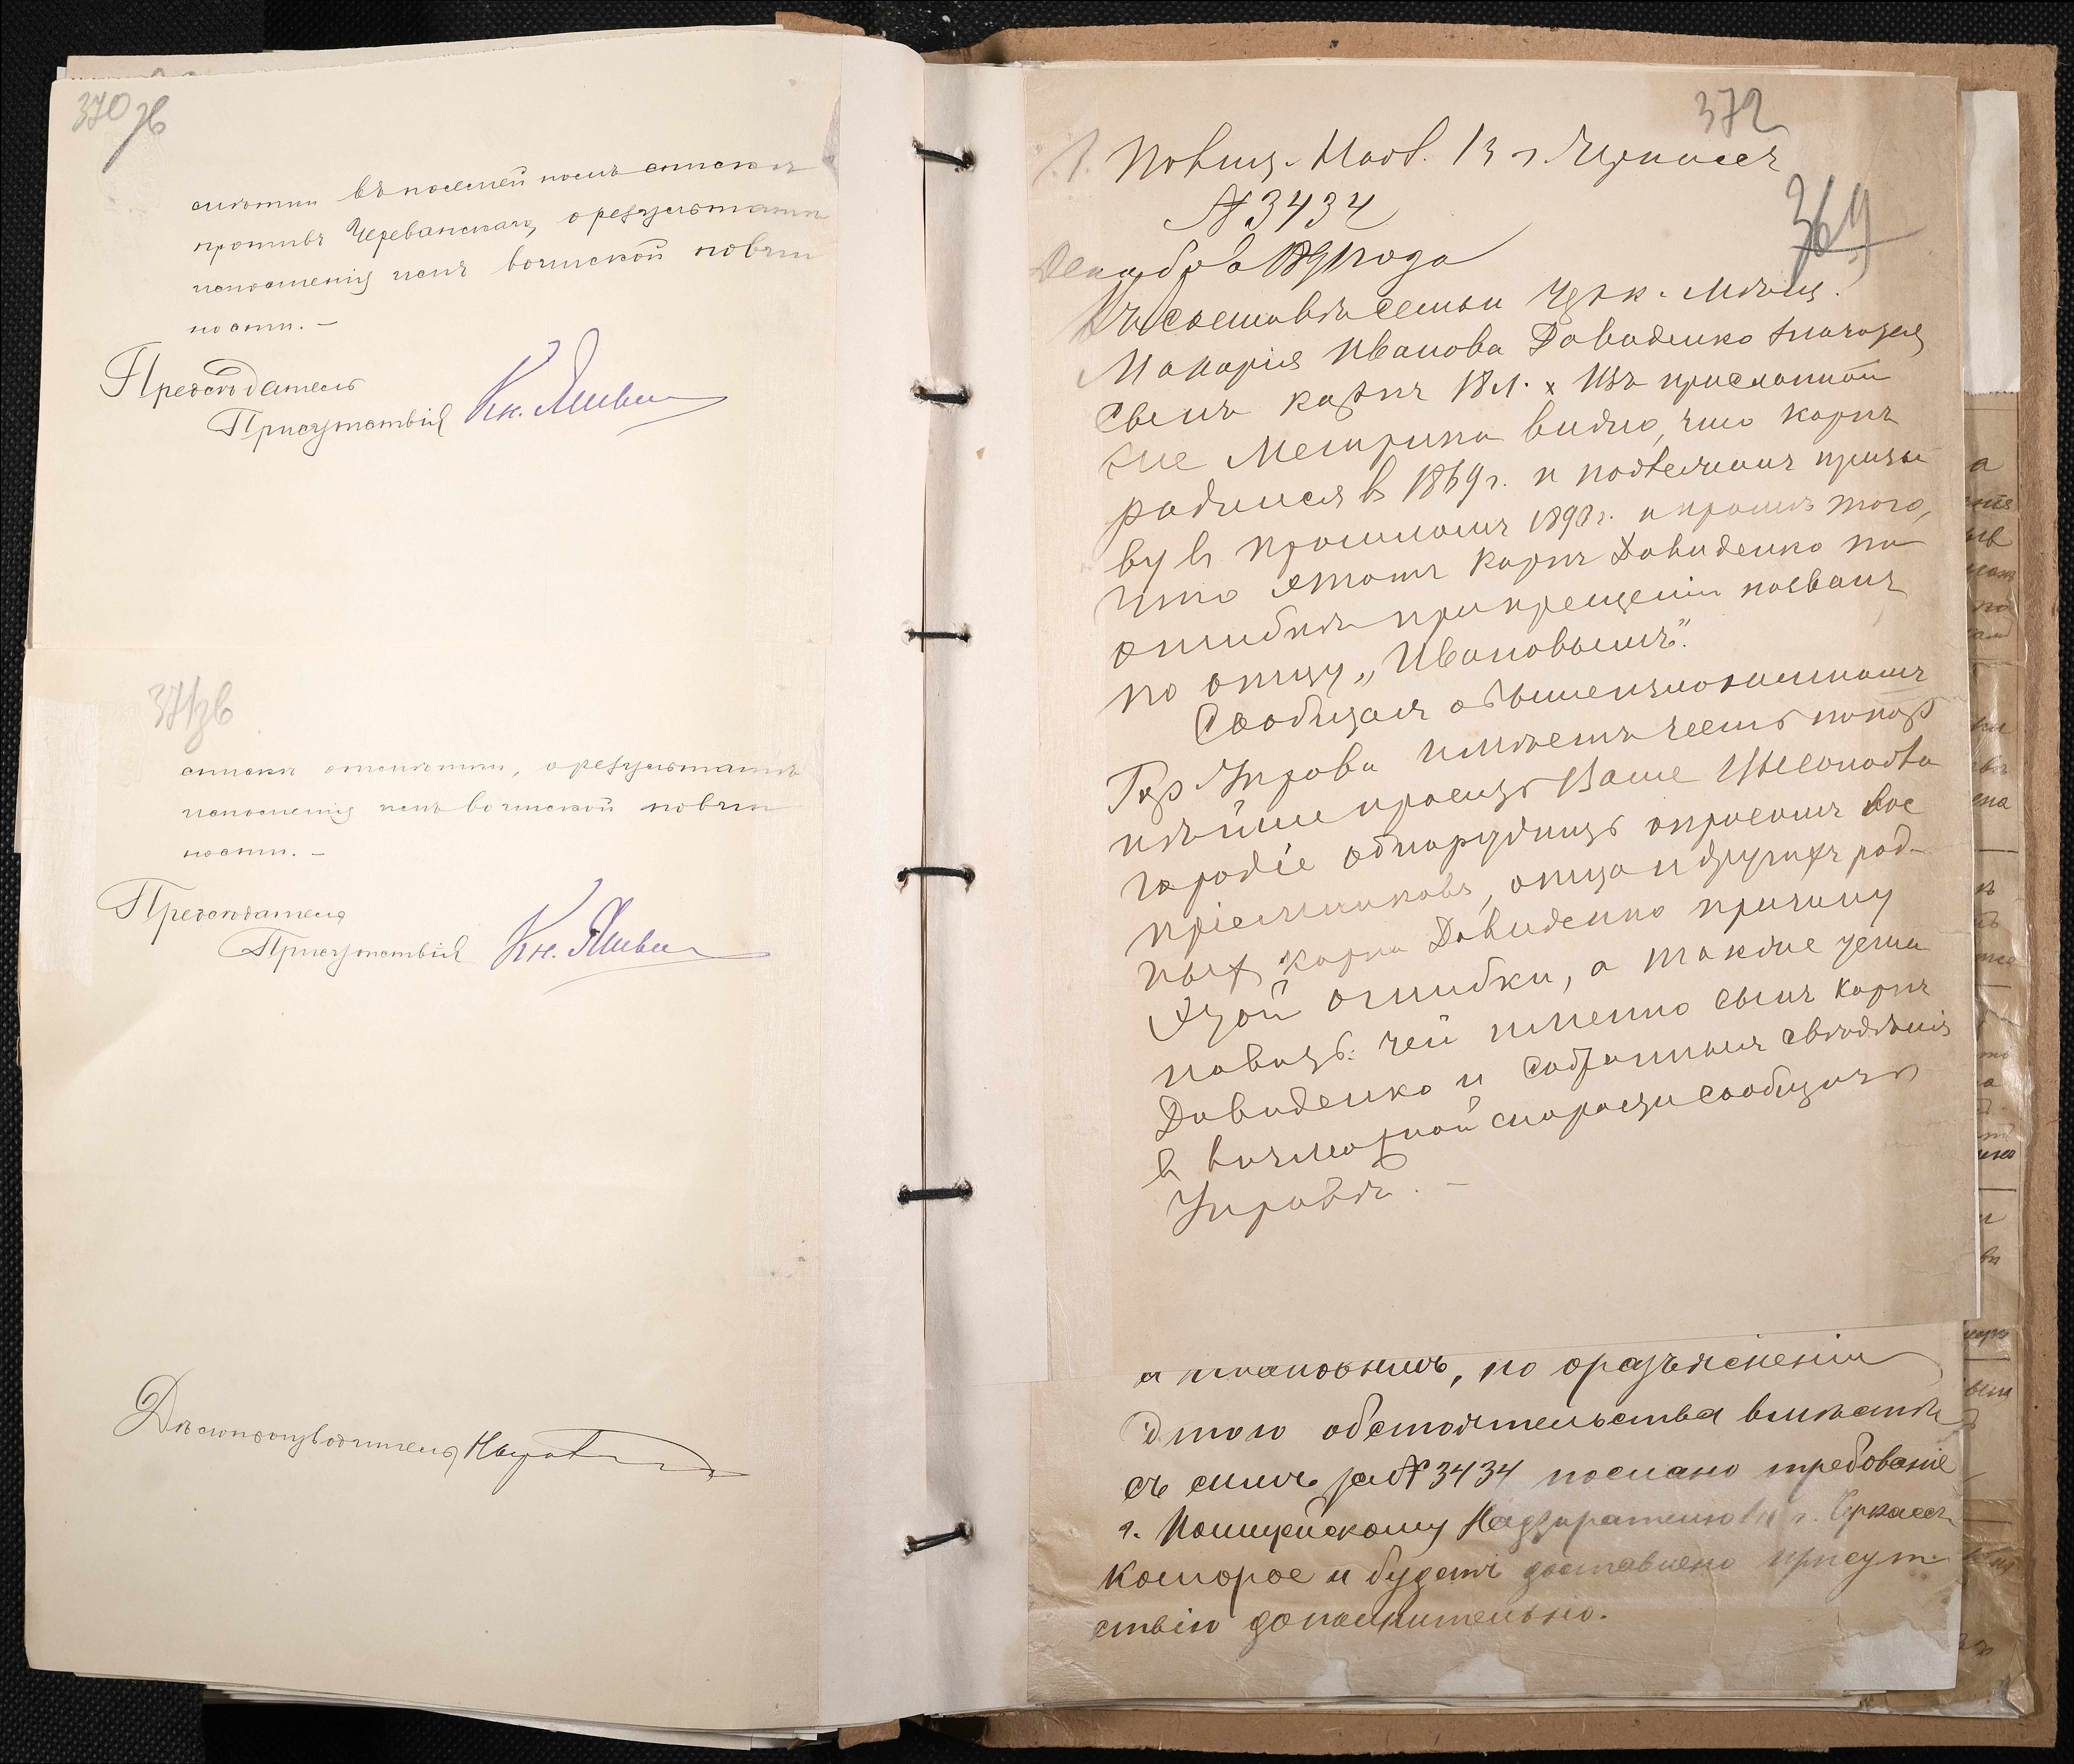 370 зв
въ посемейномъ спискѣ
отмѣтки
противъ Череванскаго, о результатѣ
исполненія имъ воинской повин
ности. —
Предсѣдатель
Присутствія Кн. Яшвиль
371 зв
спискѣ отмѣтки, о результатѣ
исполненія имъ воинской повин
ности. —
Предсѣдатель
Присутствія Кн. Яшвиль
Дѣлопроизводитель
372
369
Полиц. Надз. въ г. Черкассы
№ 3434
Декабря 1891 года
Въ составѣ семьи Черк. мѣщ.
Макарія Иванова Давиденко значится
сынъ Карпъ 18 л. Изъ присланной
же метрики видно, что Карпъ
родился въ 1869 г. и подлежалъ призы
ву въ прошломъ 1890 г. и кромѣ того,
что этотъ Карпъ Давиденко по
ошибкѣ при крещеніи названъ
по отцу „Ивановымъ".
Сообщая о вышеизложенномъ
Гор. Управа имѣетъ честь покор
нѣйше просить Ваше Высокобла
городіе обнаружить опросомъ вос
пріемниковъ, отца и другихъ род-
ныхъ Карпа Давиденко причину
этой ошибки, а также уста
новить: чей именно сынъ Карпъ
Давиденко и собранныя свѣдѣнія
въ возможной скорости сообщить
Управѣ. —
а таковымъ, по разъясненіи
этого обстоятельства вмѣстѣ
съ симъ за № 3434 послано требованіе
г. Полицейскому Надзирателю въ г. Черкассы
которое и будетъ доставлено присут-
ствію дополнительно.